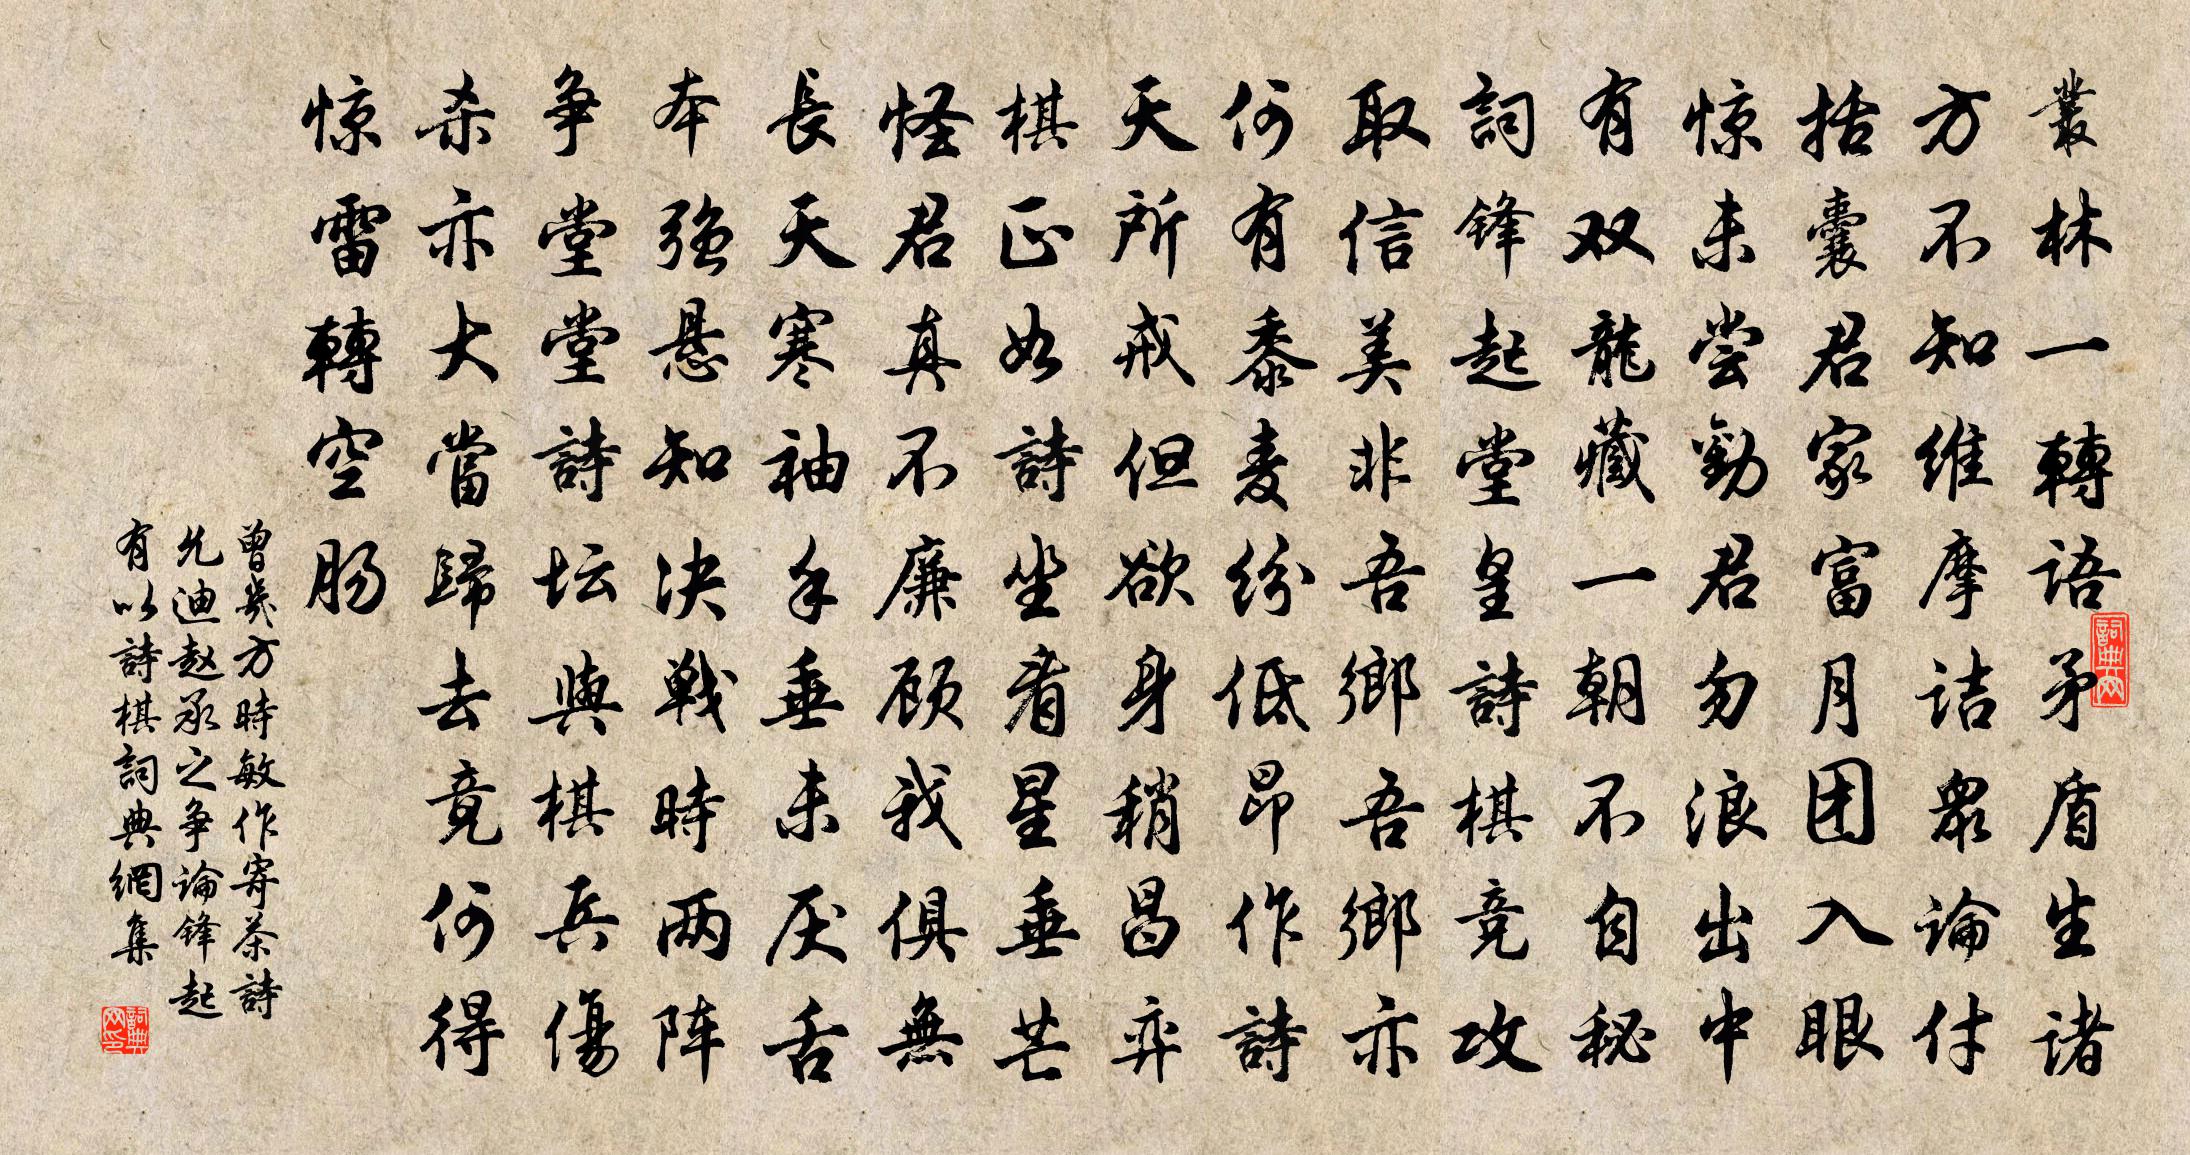 叢林一轉語矛盾生诸
方不知維摩诘眾論付
括囊君家富月团入眼
惊未尝勸君勿浪出中
有双龍藏一朝不自秘
詞锋起堂皇詩棋竞攻
取信美非吾鄉吾鄉亦
何有黍麦纷低昂作詩
天所戒但欲身稍昌弈
棋正如詩坐看星垂芒
怪君真不廉顾我俱無
長天寒袖手垂未厌舌
本强悬知决戰時两阵
争堂堂詩坛與棋兵傷
杀亦大當歸去竟何得
惊雷轉空肠
曾幾方時敏作寄茶詩
允迪赵承之争論锋起
有以詩棋詞典網集
詞典网
詞典网印